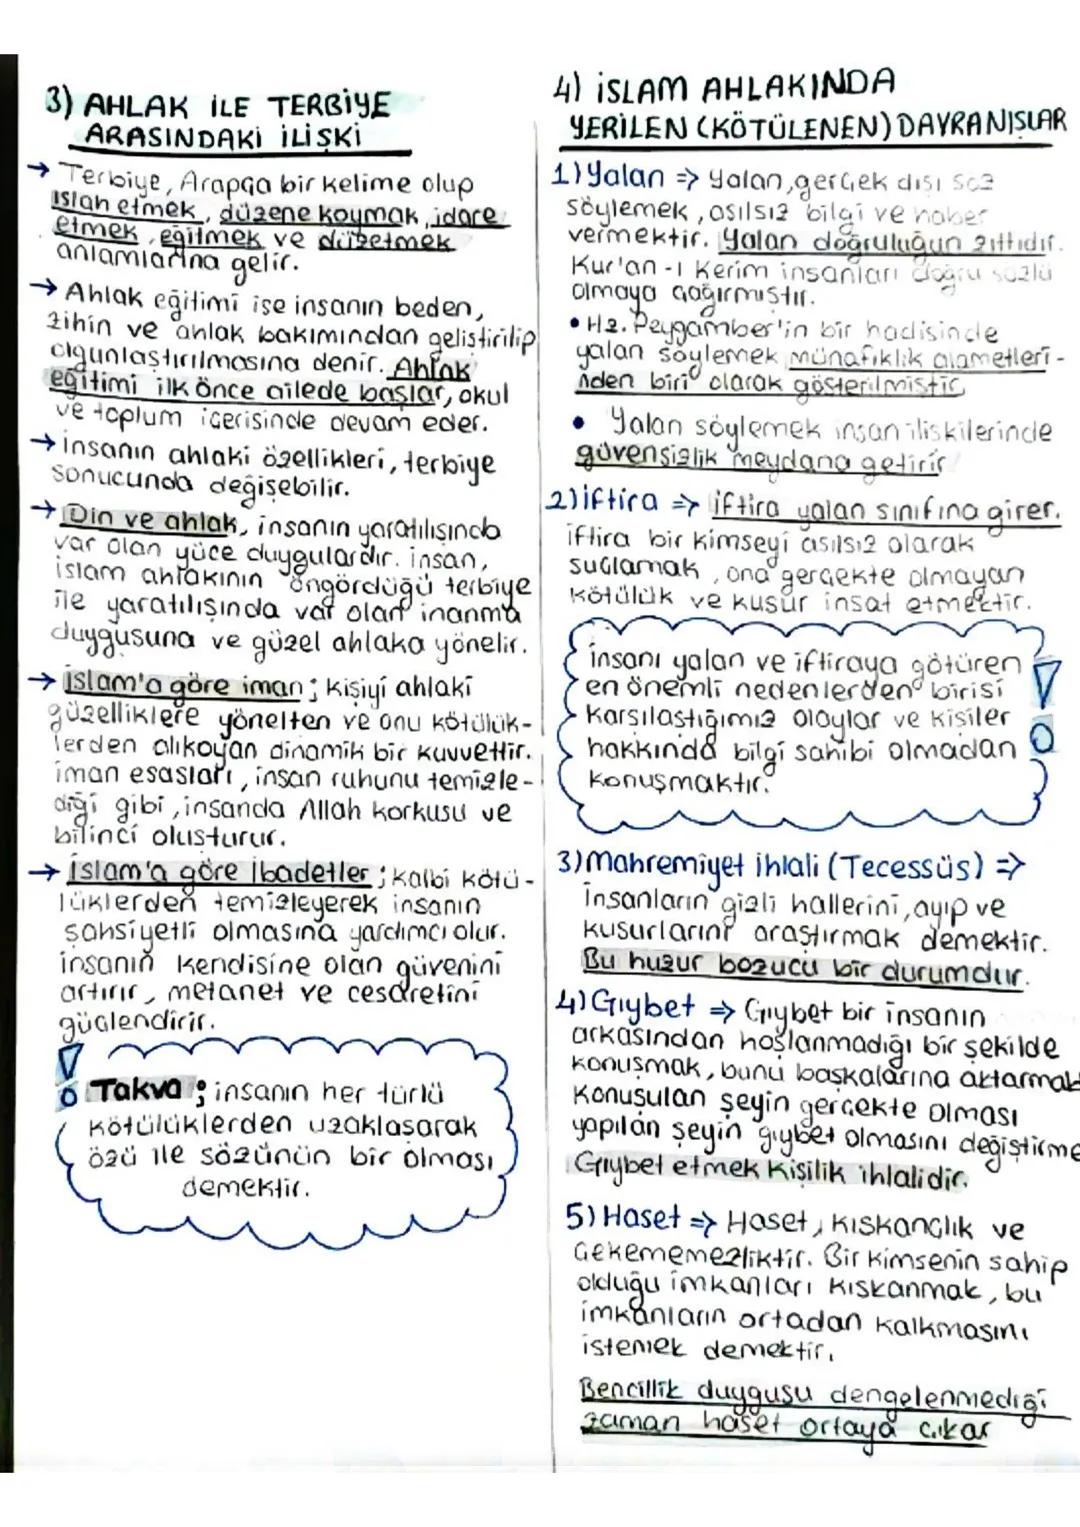 3) AHLAK İLE TERBİYE
ARASINDAKİ İLİŞKİ
→ Terbiye, Arapça bir kelime olup
ıslah etmek, düzene koymak, idare
etmek, eğitmek ve düzetmek
anlamlarına gelir.
→ Ahlak eğitimi ise insanın beden,
zihin ve ahlak bakımından geliştirilip
olgunlaştırılmasına denir. Ahlak
eğitimi ilk önce ailede başlar, okul
ve toplum içerisinde devam eder.
→ İnsanın ahlaki özellikleri, terbiye
sonucunda değişebilir.
→ Din ve ahlak, insanın yaratılışında
var olan yüce duygulardır. İnsan,
islam ahlakının öngördüğü terbiye
ile yaratılışında var olan inanma
duygusuna ve güzel ahlaka yönelir.
→ İslam'a göre iman; kişiyi ahlaki
güzelliklere yönelten ve onu kötülük-
lerden alıkoyan dinamik bir kuvvettir.
iman esasları, insan ruhunu temizle-
diği gibi, insanda Allah korkusu ve
bilinci oluşturur.
→ İslam'a göre İbadetler; kalbi kötü-
lüklerden temizleyerek insanın
şahsiyetli olmasına yardımcı olur.
insanın kendisine olan güvenini
artırır, metanet ve cesaretini
güçlendirir.
Takva; insanın her türlü
kötülüklerden uzaklaşarak
özü ile sözünün bir olması
demektir.
4) İSLAM AHLAKINDA
YERİLEN (KÖTÜLENEN) DAVRANIŞLAR
1) Yalan => Yalan, gerçek dışı söz
söylemek, asılsız bilgi ve haber
vermektir. Yalan doğruluğun zıttıdır.
Kur'an-ı Kerim insanları doğru sözlü
olmaya çağırmıştır.
• Hz. Peygamber'in bir hadisinde
yalan söylemek münafıklık alametleri-
nden biri olarak gösterilmiştir.
• Yalan söylemek insan ilişkilerinde
güvensizlik meydana getirir
2) İftira => İftira yalan sınıfına girer.
iftira bir kimseyi asılsız olarak
suçlamak, ona gerçekte olmayan
kötülük ve kusur insat etmektir.
İnsanı yalan ve iftiraya götüren
en önemli nedenlerden birisi
karşılaştığımız olaylar ve kişiler
hakkında bilgi sahibi olmadan
konuşmaktır.
3) Mahremiyet ihlali (Tecessüs) =>
İnsanların gizli hallerini, ayıp ve
kusurlarını araştırmak demektir.
Bu huzur bozucu bir durumdur.
4) Gıybet => Gıybet bir insanın
arkasından hoşlanmadığı bir şekilde
konuşmak, bunu başkalarına aktarmak
Konuşulan şeyin gerçekte olması
yapılan şeyin gıybet olmasını değiştirme
Gıybet etmek kişilik ihlalidir.
5) Haset => Haset, kıskançlık ve
çekememezliktir. Bir kimsenin sahip
olduğu imkanları kıskanmak, bu
imkanların ortadan kalkmasını
istemek demektir.
Bencillik duygusu dengelenmediği
zaman haset ortaya çıkar